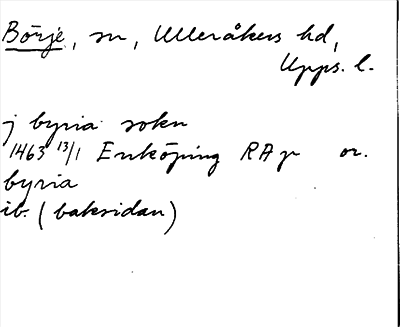 Börje, sn, Ulleråkers hd,
Upps. l.
j byria sokn
1463 13/1 Enköping RA p or.
byria
ib. (baksidan)